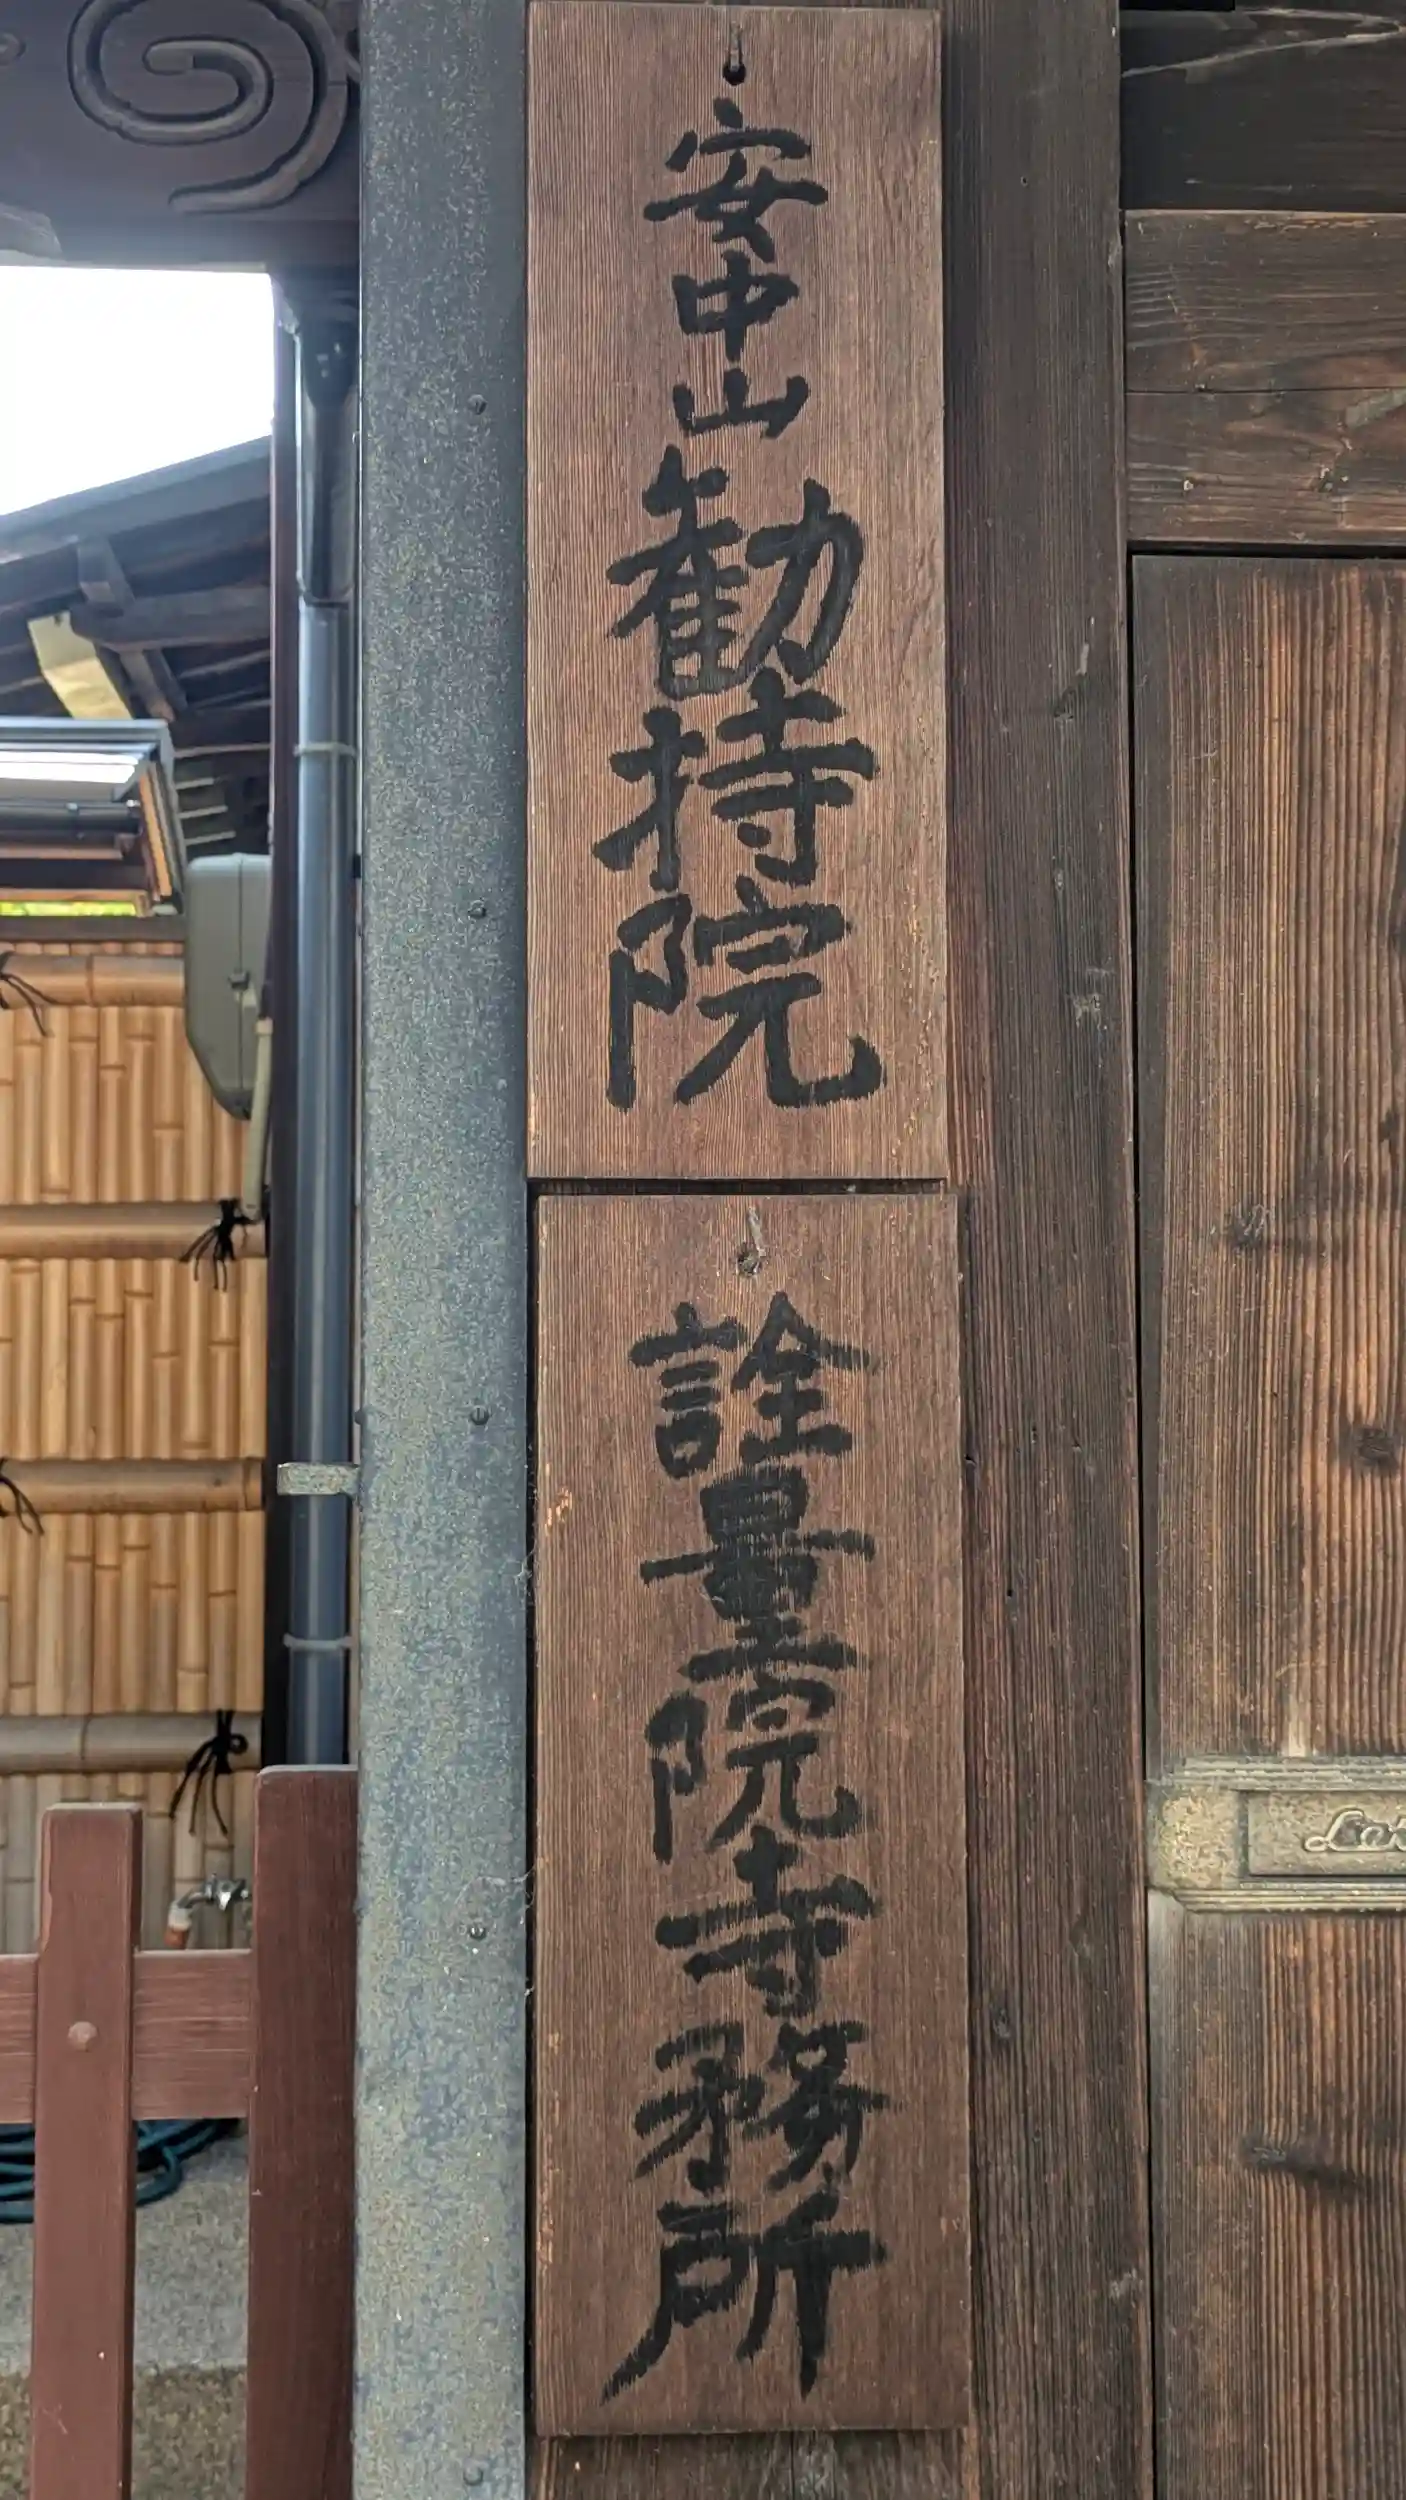 安中山勧持院
詮量院寺務所